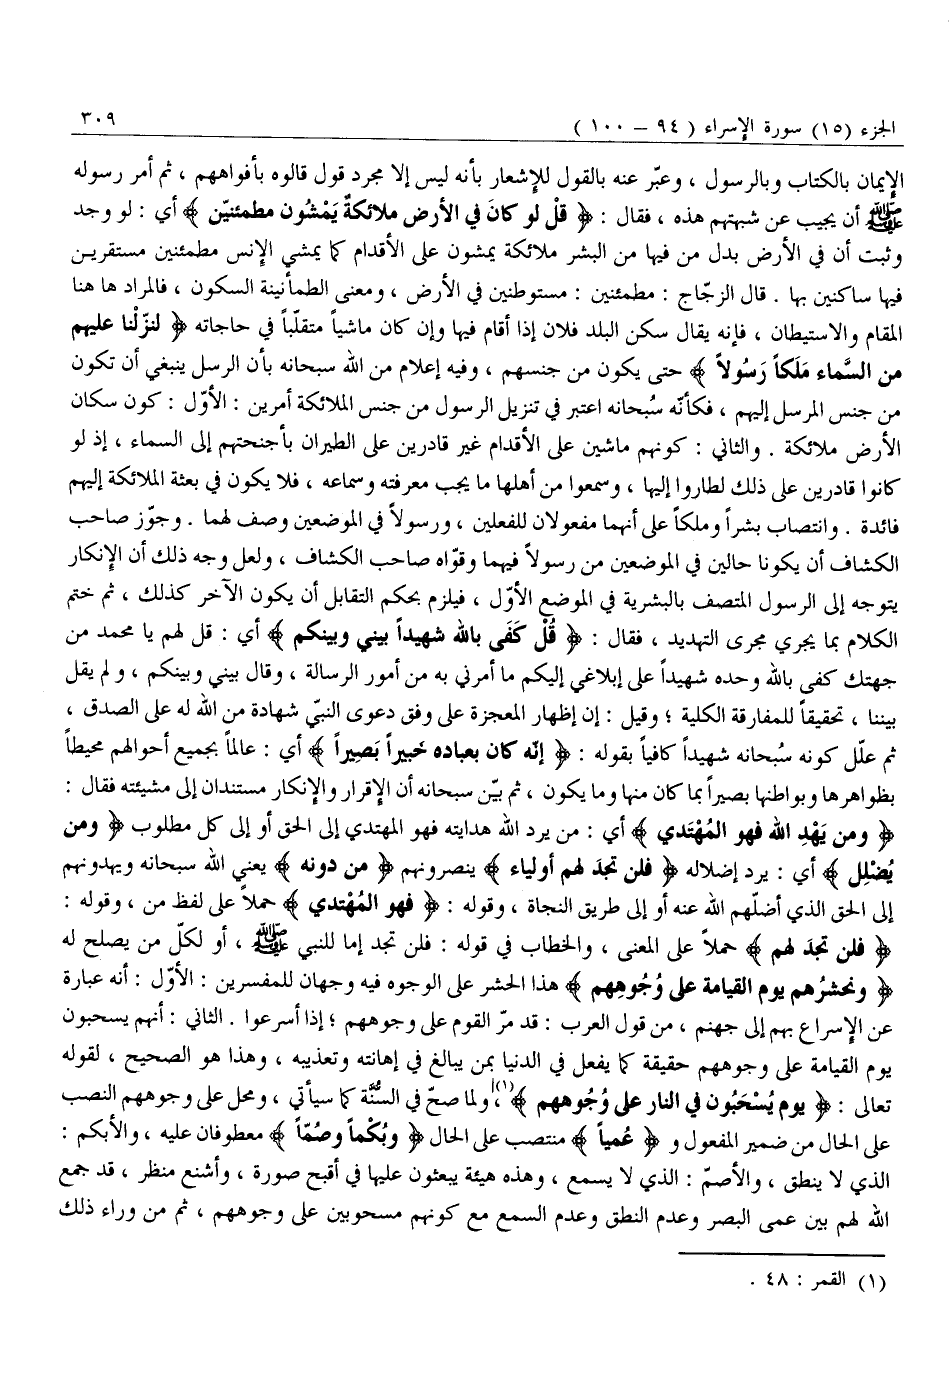 الجزء (١٥) سورة الإسراء ( ٩٤ – ١٠٠ ) ٣٠٩
الإيمان بالكتاب وبالرسول ، وعبّر عنه بالقول للإشعار بأنه ليس إلا مجرد قول قالوه بأفواههم ، ثم أمر رسوله
ﷺ أن يجيب عن شبهتهم هذه ، فقال : ﴿ قلْ لو كانَ في الأرض ملائكةٌ يَمْشُون مطمئنّين ﴾ أي : لو وجد
وثبت أن في الأرض بدل من فيها من البشر ملائكة يمشون على الأقدام كما يمشي الإنس مطمئنين مستقرين
فيها ساكنين بها . قال الزجّاج : مطمئنين : مستوطنين في الأرض ، ومعنى الطمأنينة السكون ، فالمراد ها هنا
المقام والاستيطان ، فإنه يقال سكن البلد فلان إذا أقام فيها وإن كان ماشياً متقلّباً في حاجاته ﴿ لنزلْنا عليهم
من السَّماء مَلَكاً رَسُولاً ﴾ حتى يكون من جنسهم ، وفيه إعلام من الله سبحانه بأن الرسل ينبغي أن تكون
من جنس المرسل إليهم ، فكأنّه سُبحانه اعتبر في تنزيل الرسول من جنس الملائكة أمرين : الأوّل : كون سكان
الأرض ملائكة . والثاني : كونهم ماشين على الأقدام غير قادرين على الطيران بأجنحتهم إلى السماء ، إذ لو
كانوا قادرين على ذلك لطاروا إليها ، وسمعوا من أهلها ما يجب معرفته وسماعه ، فلا يكون في بعثة الملائكة إليهم
فائدة . وانتصاب بشراً وملكاً على أنهما مفعولان للفعلين ، ورسولاً في الموضعين وصف لهما . وجوّز صاحب
الكشاف أن يكونا حالين في الموضعين من رسولاً فيهما وقوّاه صاحب الكشاف ، ولعل وجه ذلك أن الإنكار
يتوجه إلى الرسول المتصف بالبشرية في الموضع الأوّل ، فيلزم بحكم التقابل أن يكون الآخر كذلك ، ثم ختم
الكلام بما يجري مجرى التهديد ، فقال : ﴿ قُلْ كَفَى بالله شهيداً بيني وبينكم ﴾ أي : قل لهم يا محمد من
جهتك كفى بالله وحده شهيداً على إبلاغي إليكم ما أمرني به من أمور الرسالة ، وقال بيني وبينكم ، ولم يقل
بيننا ، تحقيقاً للمفارقة الكلية ؛ وقيل : إن إظهار المعجزة على وفق دعوى النبيّ شهادة من الله له على الصدق ،
ثم علّل كونه سُبحانه شهيداً كافياً بقوله : ﴿ إنّه كان بعباده خَبيراً بَصِيراً ﴾ أي : عالماً بجميع أحوالهم محيطاً
بظواهرها وبواطنها بصيراً بما كان منها وما يكون ، ثم بيّن سبحانه أن الإقرار والإنكار مستندان إلى مشيئته فقال :
﴿ ومن يَهْدِ الله فهو المُهْتَدي ﴾ أي : من يرد الله هدايته فهو المهتدي إلى الحق أو إلى كل مطلوب ﴿ ومن
يُضْلِل ﴾ أي : يرد إضلاله ﴿ فلن تجدَ لهم أولياء ﴾ ينصرونهم ﴿ من دونه ﴾ يعني الله سبحانه ويهدونهم
إلى الحق الذي أضلّهم الله عنه أو إلى طريق النجاة ، وقوله : ﴿ فهو المُهْتدي ﴾ حملاً على لفظ من ، وقوله :
﴿ فلن تجدَ لهم ﴾ حملاً على المعنى ، والخطاب في قوله : فلن تجد إما للنبي ﷺ ، أو لكلّ من يصلح له
﴿ ونحشرُهم يوم القيامة على وُجُوهِهم ﴾ هذا الحشر على الوجوه فيه وجهان للمفسرين : الأوّل : أنه عبارة
عن الإسراع بهم إلى جهنم ، من قول العرب : قد مرّ القوم على وجوههم ؛ إذا أسرعوا . الثاني : أنهم يسحبون
يوم القيامة على وجوههم حقيقة كما يفعل في الدنيا بمن يبالغ في إهانته وتعذيبه ، وهذا هو الصحيح ، لقوله
تعالى : ﴿ يوم يُسْحَبُون في النار على وُجُوههم ﴾(١) ، ولما صحّ في السُّنّة كما سيأتي ، ومحل على وجوههم النصب
على الحال من ضمير المفعول و ﴿ عُمياً ﴾ منتصب على الحال ﴿ وبُكْماً وصُمّاً ﴾ معطوفان عليه ، والأبكم :
الذي لا ينطق ، والأصمّ : الذي لا يسمع ، وهذه هيئة يبعثون عليها في أقبح صورة ، وأشنع منظر ، قد جمع
الله لهم بين عمى البصر وعدم النطق وعدم السمع مع كونهم مسحوبين على وجوههم ، ثم من وراء ذلك
(١) القمر : ٤٨ .